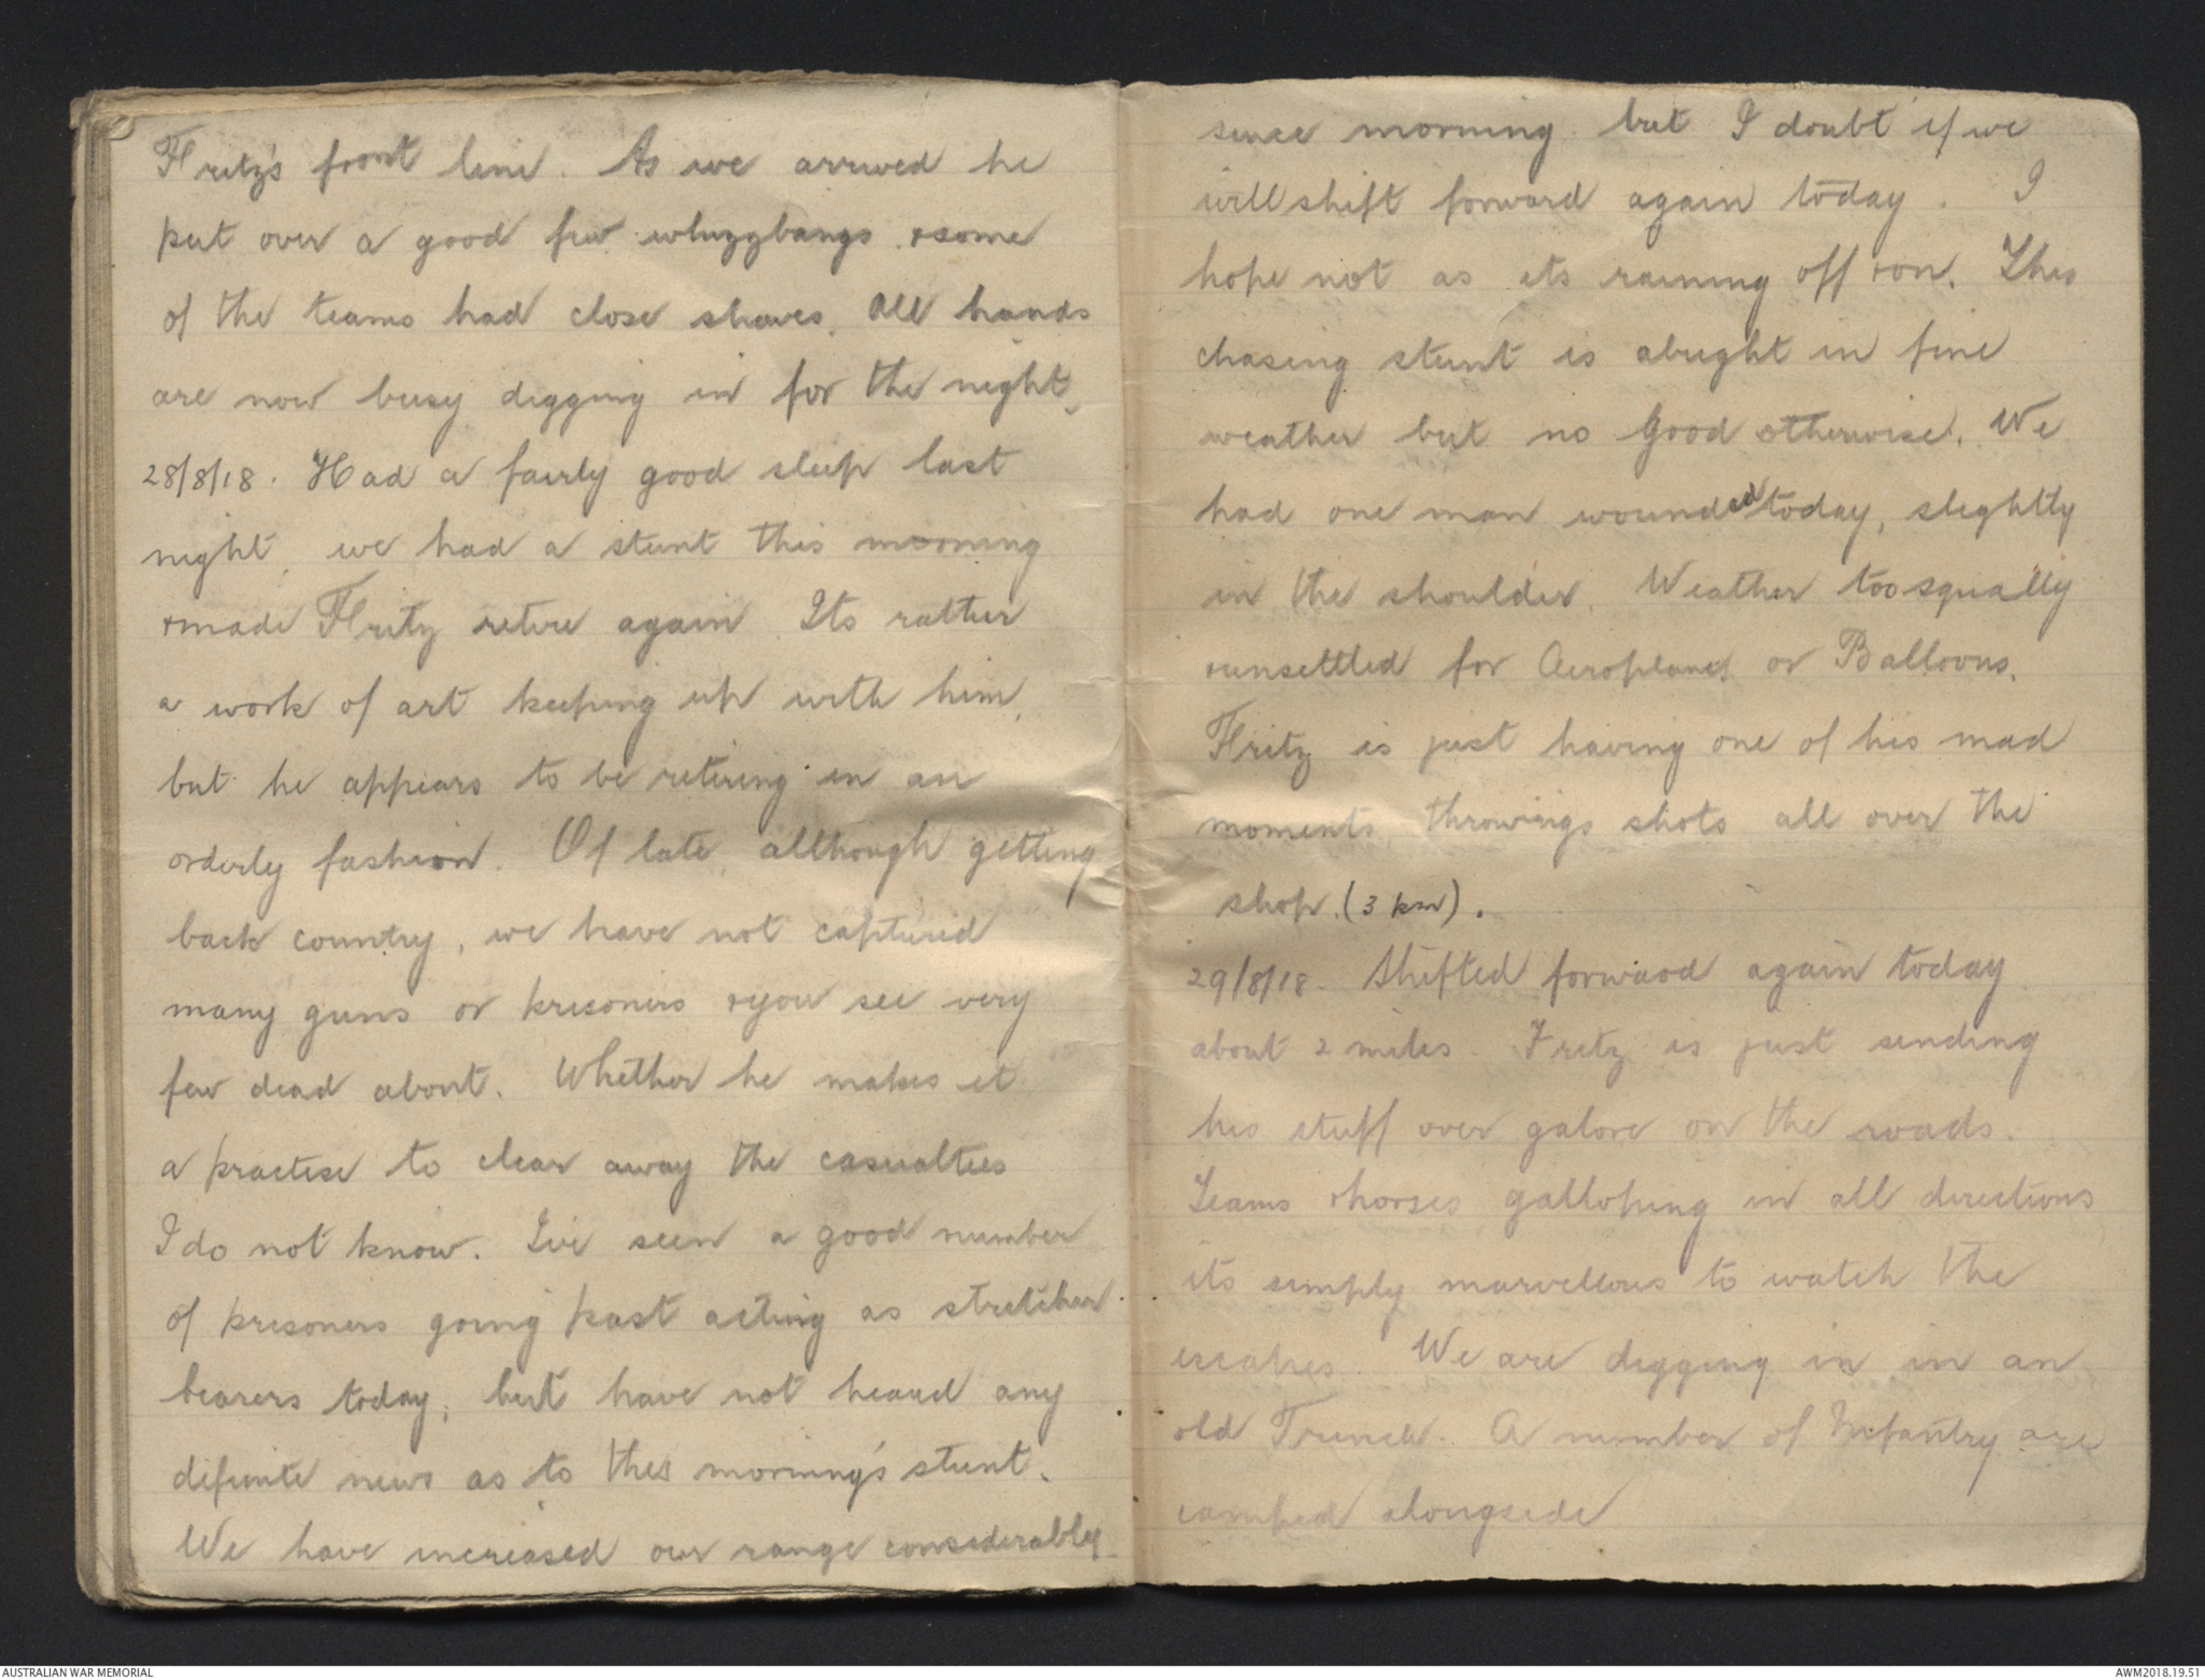 Fritz's front line. As we arrived he
put over a good few whizzbangs & some
of the teams had close shaves. All hands
are now busy digging in for the night.
28/8/18. Had a fairly good sleep last
night, we had a stunt this morning
& made Fritz retire again. Its rather
a work of art keeping up with him,
but he appears to be retiring in an
orderly fashion. Of late, allthough getting
back country, we have not captured
many guns or prisoners & you see very
few dead about. Whether he makes it
a practise to clear away the casualties
I do not know. Ive seen a good number
of prisoners going past acting as stretcher
bearers today, but have not heard any
definite news as to this morning's stunt.
We have increased our range considerably
since morning but I doubt if we
will shift forward again today. I
hope not as its raining off & on. This
chasing stunt is alright in fine
weather but no good otherwise. We
had one man wounded today, slightly
in the shoulder. Weather too squally
& unsettled for Aeroplanes or Balloons.
Fritz is just having one of his mad
moments, throwings shots all over the
shop. (3 km).
29/8/18. Shifted forward again today
about 2 miles. Fritz is just sending
his stuff over galore on the roads.
Teams & horses galloping in all directions
its simply marvellous to watch the
escapes. We are digging in in an
old Trench. A number of Infantry are
camped alongside
AUSTRALIAN WAR MEMORIAL
AWM2018.19.51